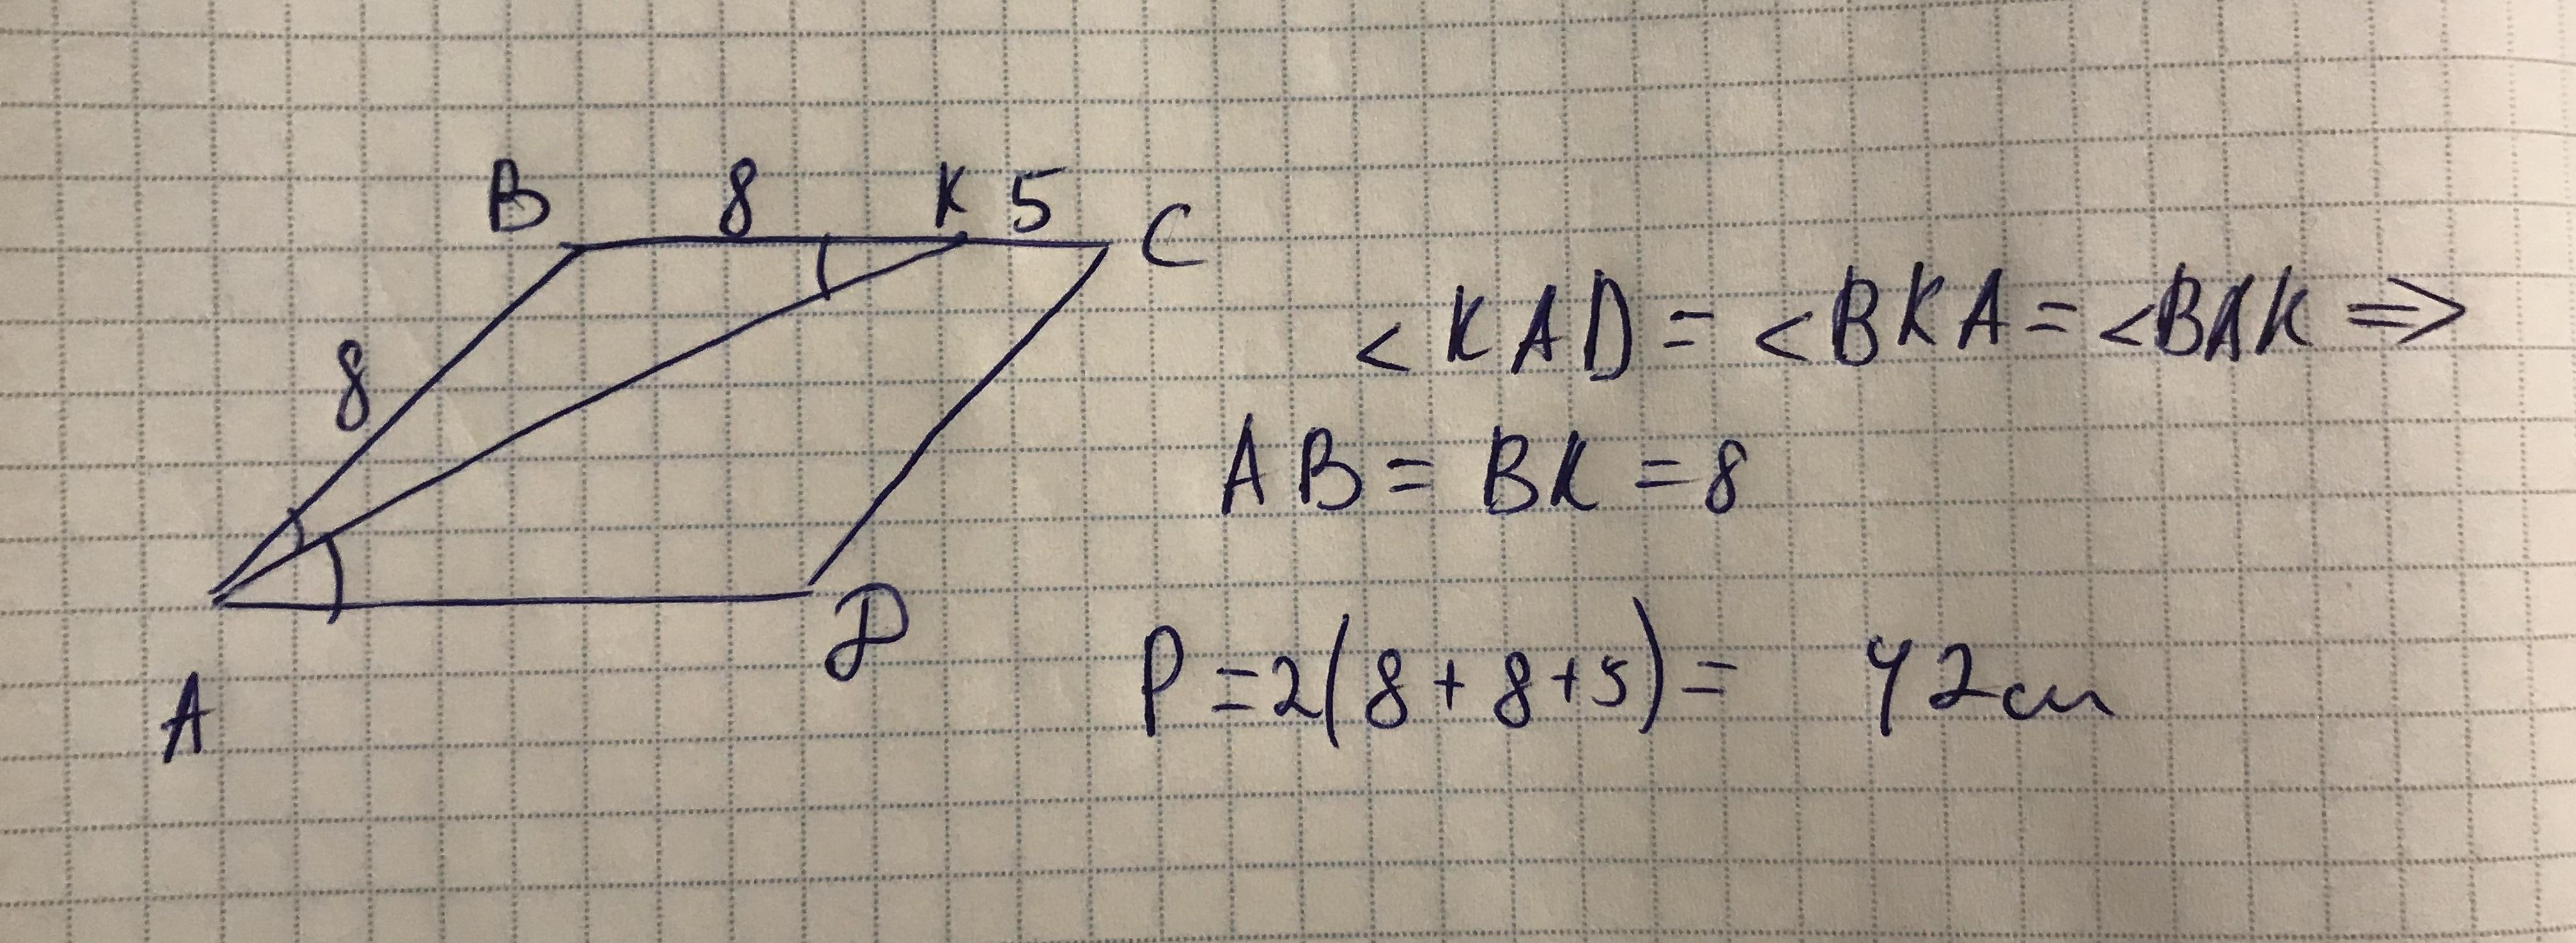 B 8 K 5 C
8
A D
< KAD = < BKA = < BAK ⇒
AB = BK = 8
P = 2(8 + 8 + 5) = 42 см